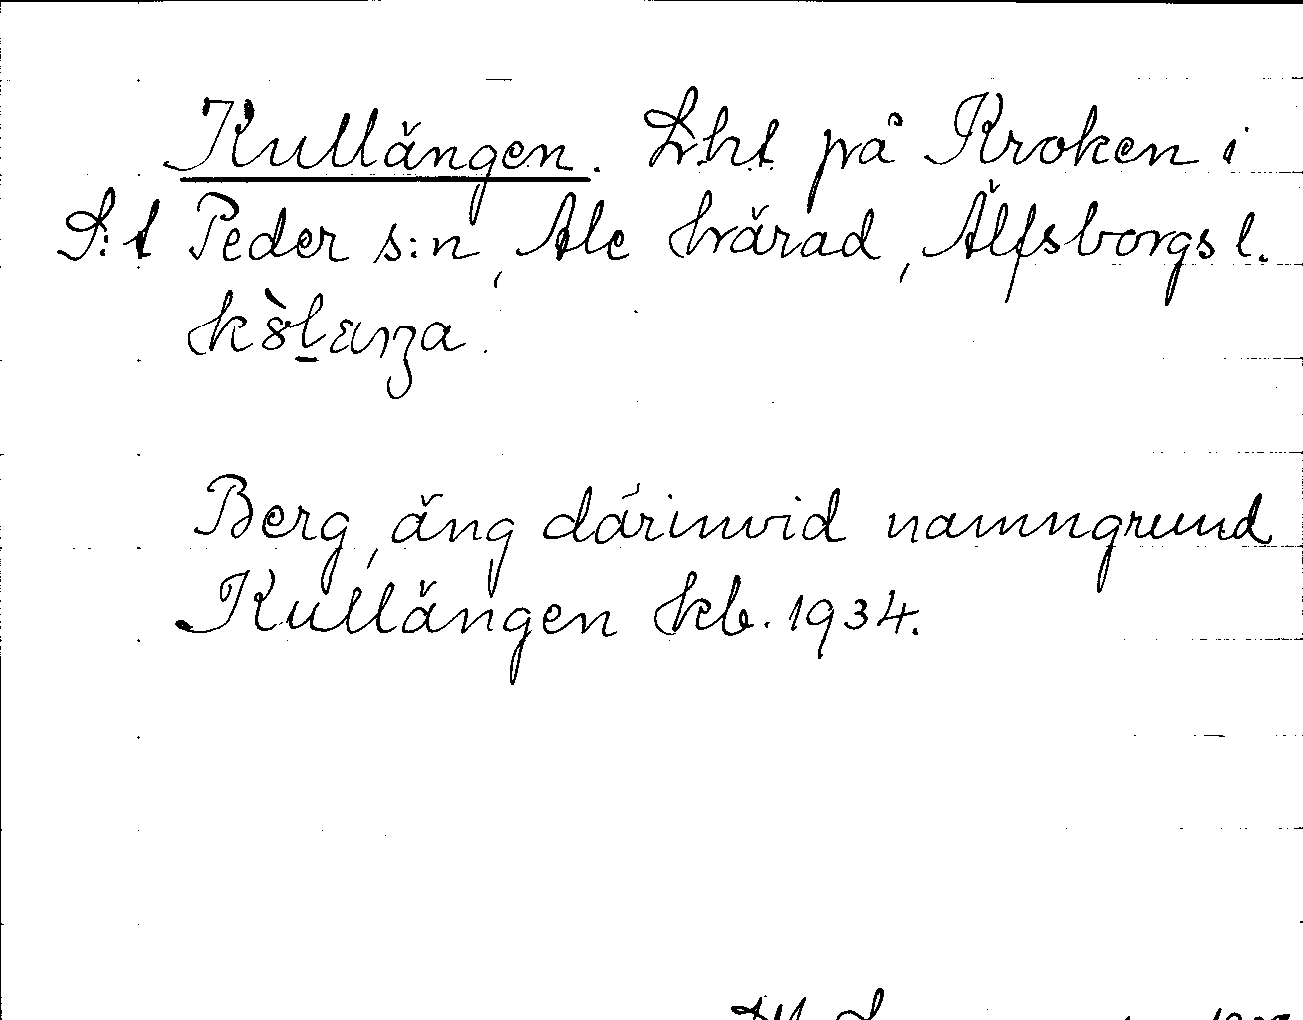 Kullängen. Lht på Kroken i
S:t Peder s:n, Ale härad, Älfsborgs l.
Berg, äng därinvid namngrund
Kullängen kb. 1934.